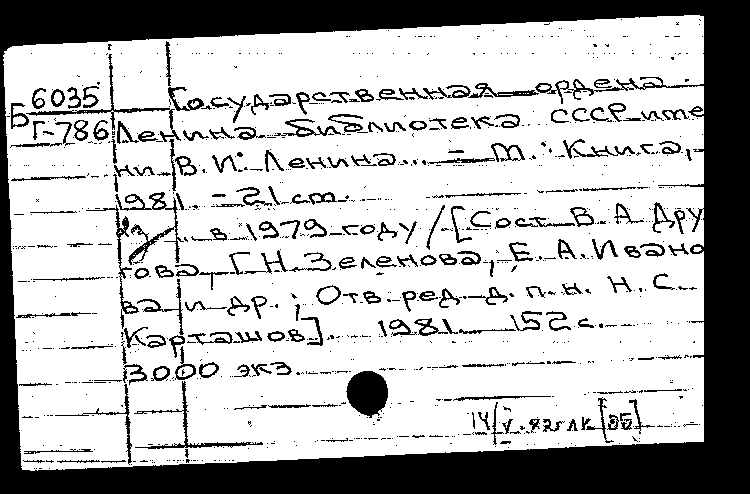 Б 6035
Г-786
Государственная ордена
Ленина библиотека СССР име
ни В. И. Ленина... - М.: Книга,
1981. - 21 см.
... в 1979 году / [Сост. В. А Дру
гова, Г. Н. Зеленова, Е. А. Ивано
ва и др.; Отв. ред. д. п. н. Н. С.
Карташов]. 1981. 152 с.
3000 экз.
14/V-82г ЛК [ЭБ]